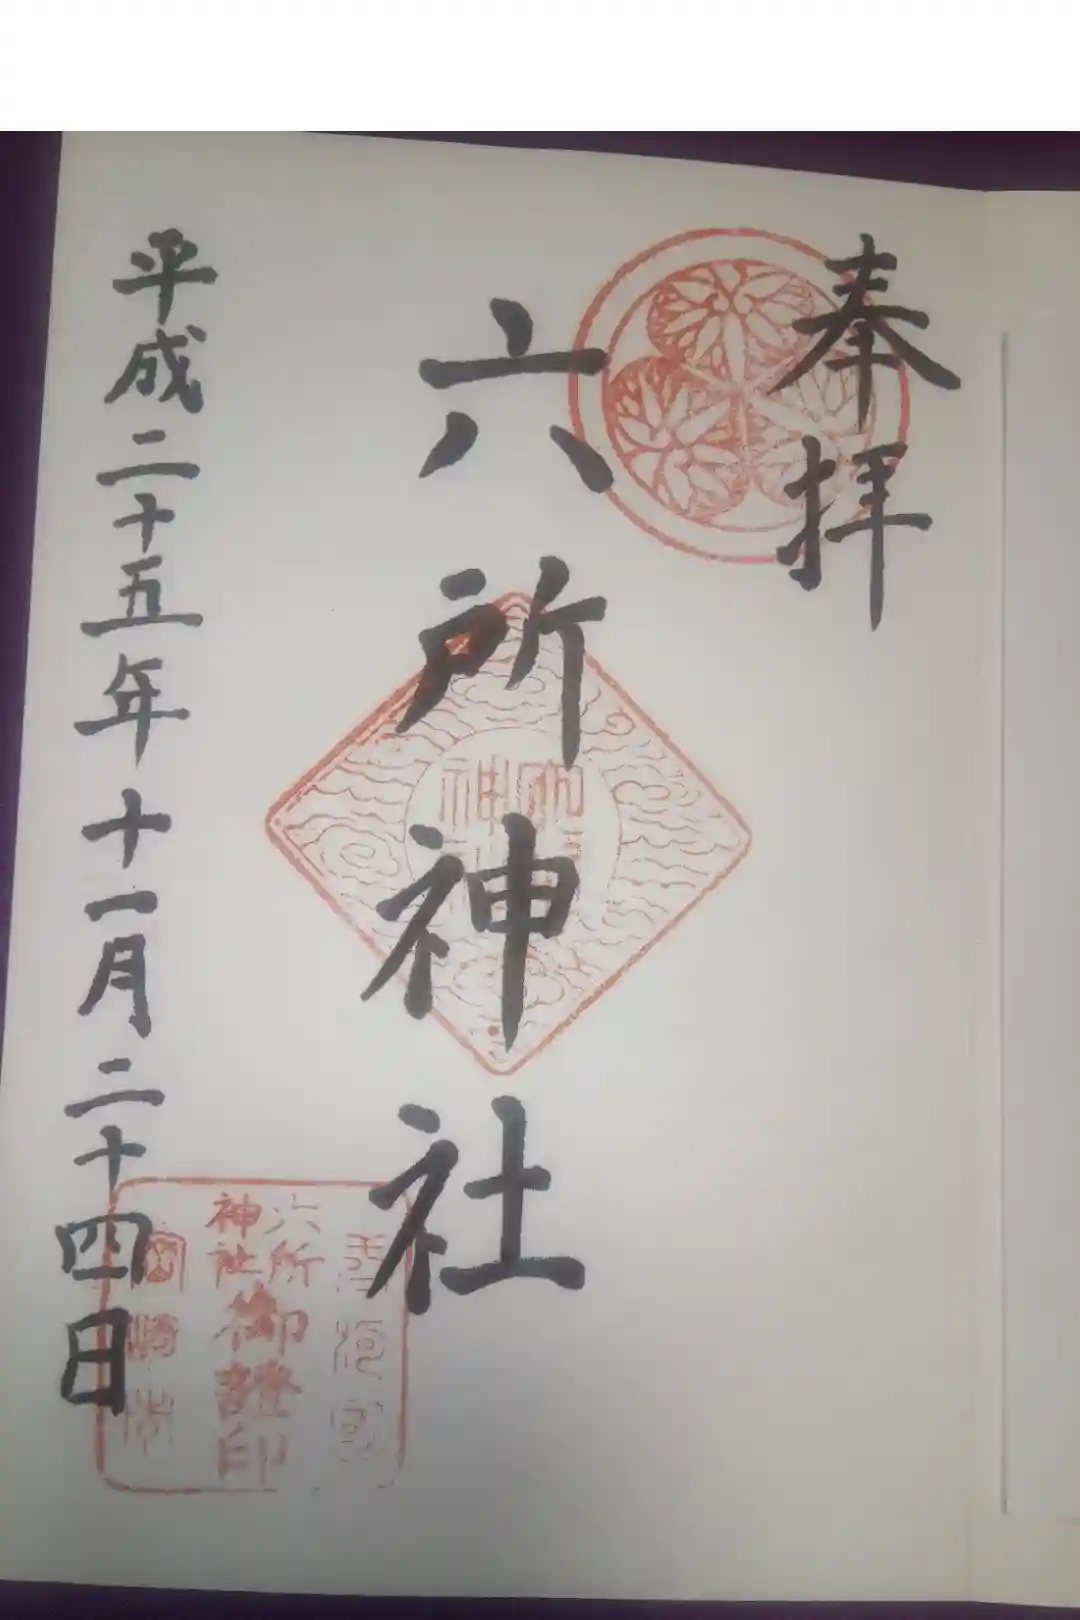 奉拝
六所神社
平成二十五年十一月二十四日
六所
神社
御證印
岡崎市